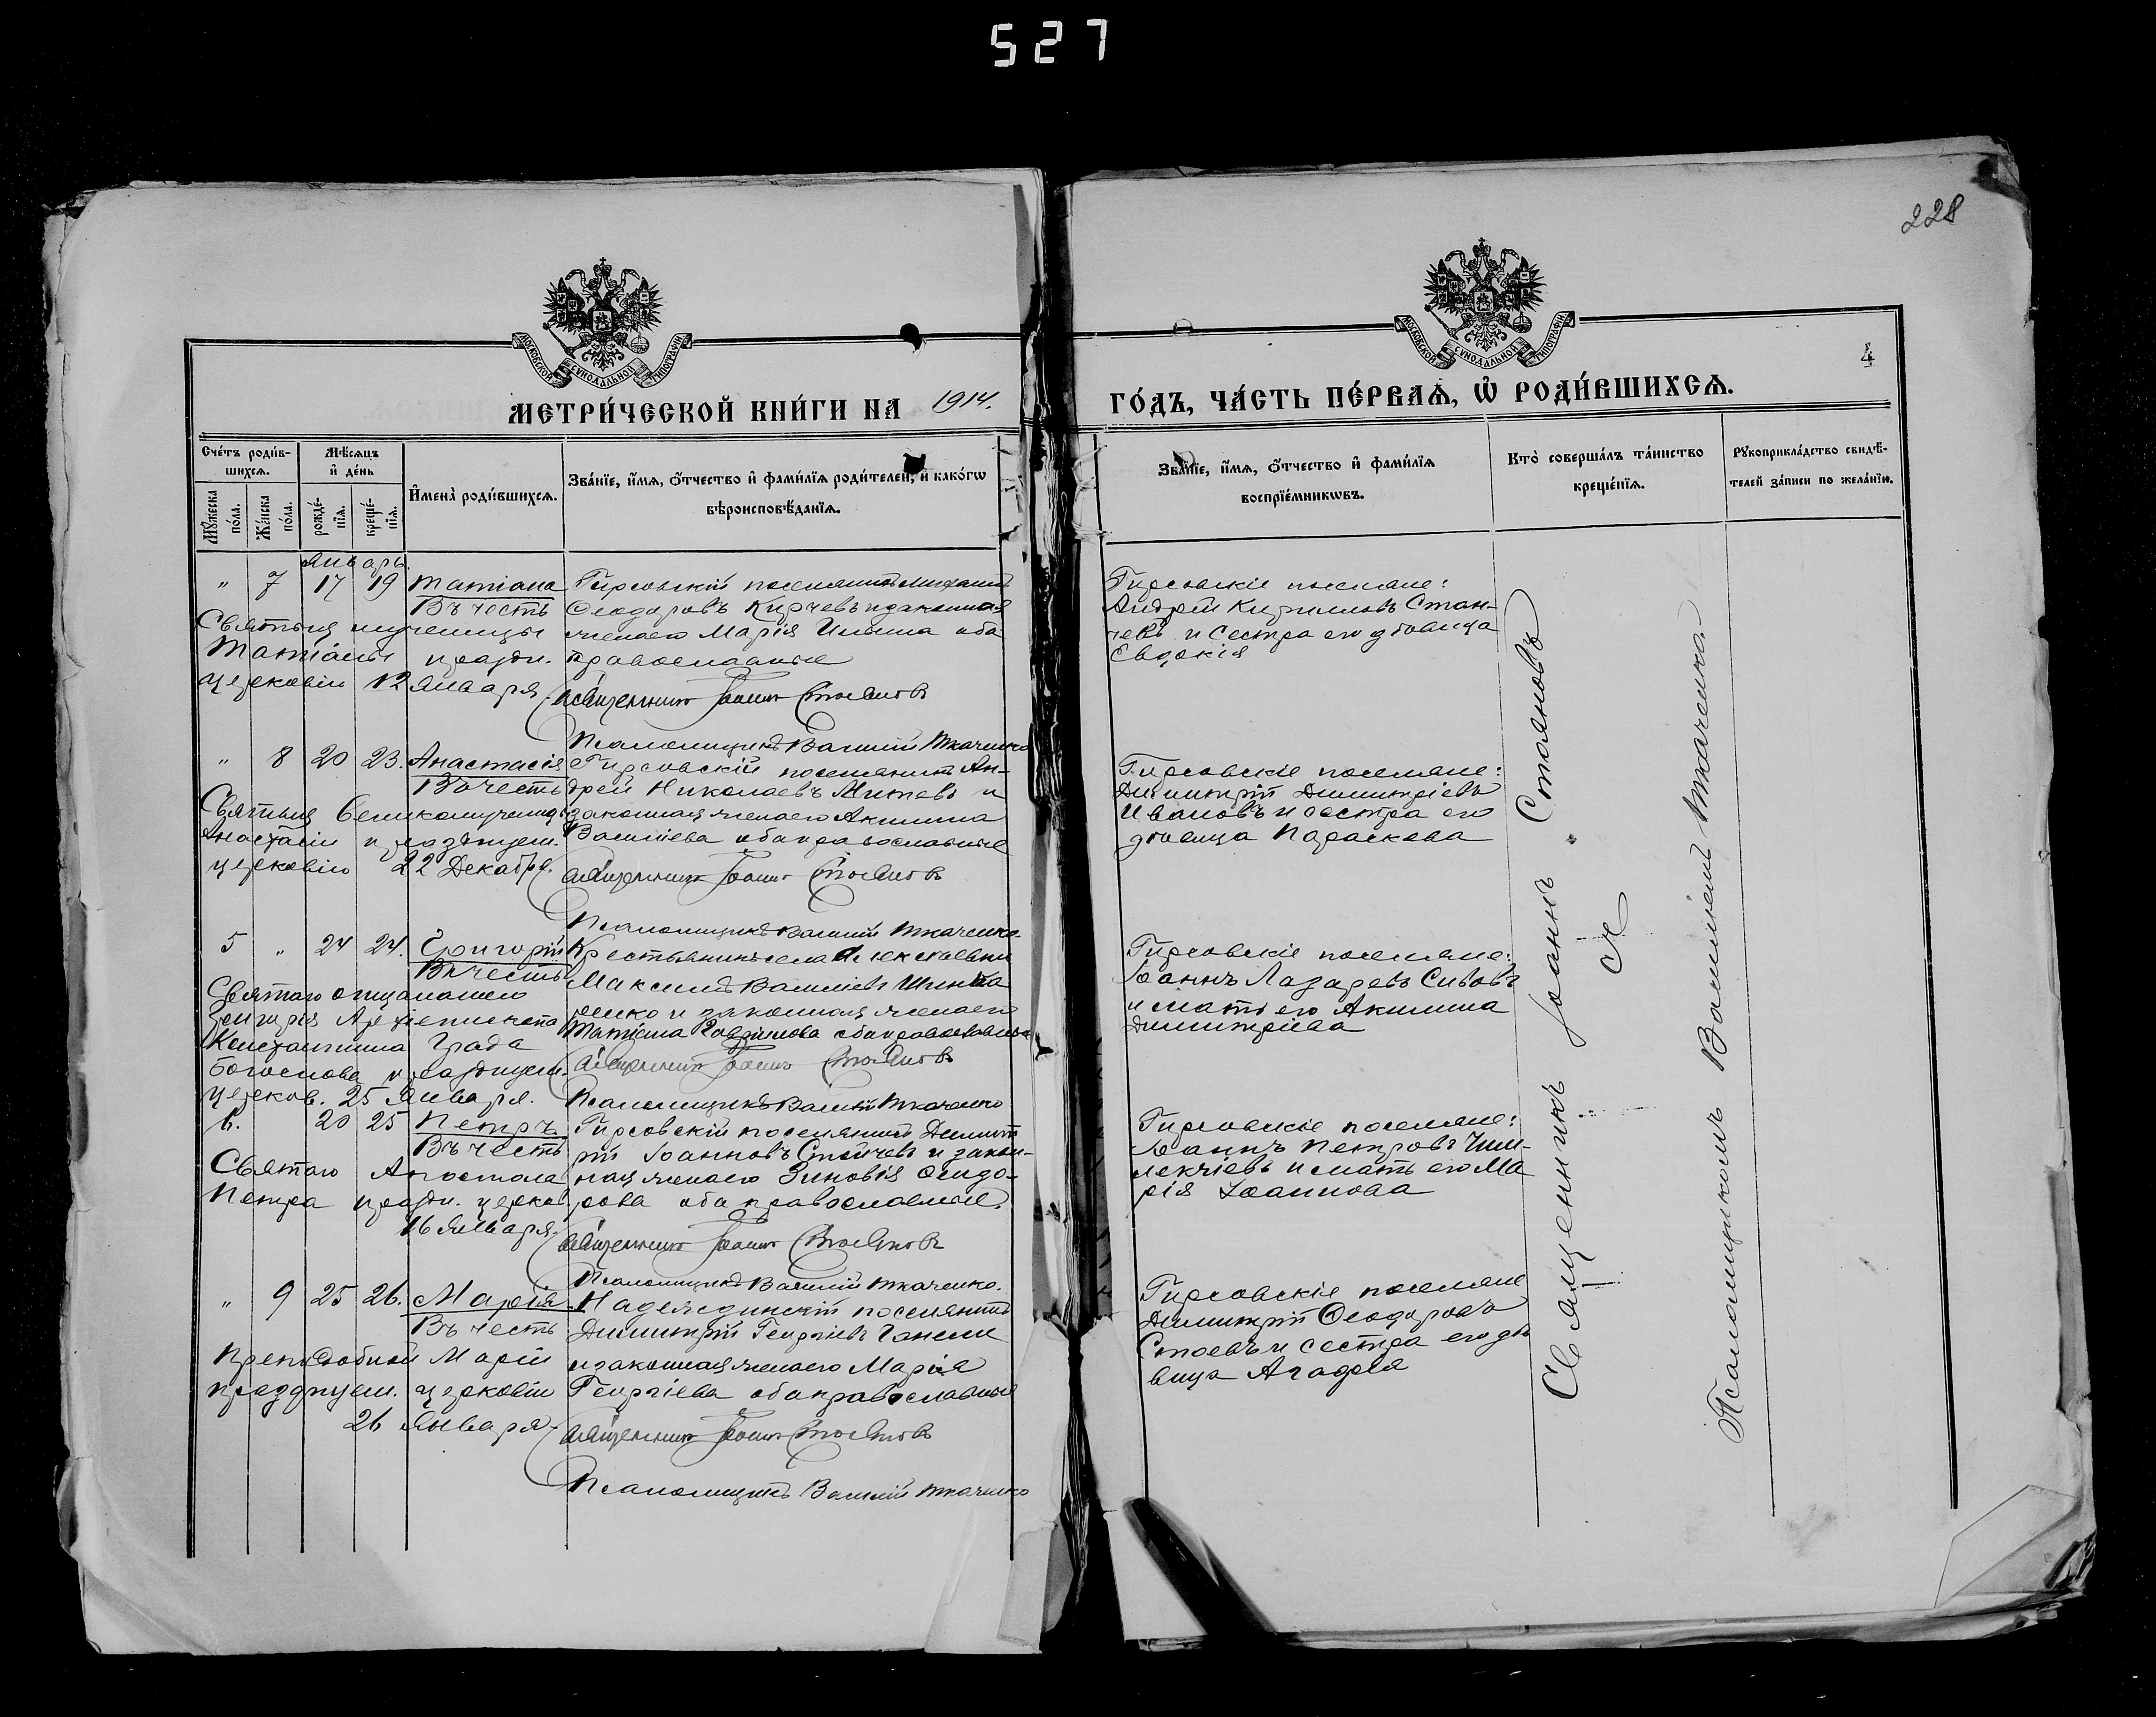 527
228
4
МОСКОВСКОЙ СУНОДАЛЬНОЙ ТИПОГРАФІИ
МОСКОВСКОЙ СУНОДАЛЬНОЙ ТИПОГРАФІИ
МЕТРИ́ЧЕСКОЙ КНИ́ГИ НА 1914.
ГО́ДЪ, ЧА́СТЬ ПЕ́РВАѦ, Ѡ҆ РОДИ́ВШИХСѦ.
Сче́тъ роди́в-
шихсѧ.
Мꙋ́жеска
по́ла.
Же́нска
по́ла.
Мѣ́сѧцъ
и҆ де́нь
рожде́-
нїѧ.
креще́-
нїѧ.
И҆мена̀ роди́вшихсѧ.
Зва́нїе, и҆́мѧ, ѻ҆́тчество и҆ фами́лїѧ роди́телей, и҆ како́гѡ
вѣроисповѣ́данїѧ.
Зва́нїе, и҆́мѧ, ѻ҆́тчество и҆ фами́лїѧ
воспрїе́мникѡвъ.
Кто̀ соверша́лъ та́инство
креще́нїѧ.
Рꙋкоприкла́дство свидѣ́-
телей за́писи по жела́нїю.
Январь
" 7 17 19 Татіана
Въ честь
Святыя мученицы
Татіаны праздн.
церковію 12 Января
Гирсовскій поселянинъ Михаилъ
Ѳеодоровъ Кирчевъ и законная
жена его Марія Ильина оба
православные
Священникъ Іоаннъ Стояновъ
Псаломщикъ Василій Ткаченко
Гирсовскіе поселяне:
Андрей Кирилловъ Стан-
чевъ и сестра его дѣвица
Евдокія
" 8 20 23. Анастасія
Въ честь
Святыя Великомученицы
Анастасіи празднуем.
церковію 22 Декабря.
Гирсовскій поселянинъ Ан-
дрей Николаевъ Митевъ и
законная жена его Акилина
Васильева оба православные
Священникъ Іоаннъ Стояновъ
Псаломщикъ Василій Ткаченко
Гирсовскіе поселяне:
Димитрій Димитріевъ
Ивановъ и сестра его
дѣвица Параскева
5 " 24 24. Григорій
Въ честь
Святаго отца нашего
Григорія Архіепископа
Константина Града
Богослова празднуем.
церков. 25 Января.
Крестьянинъ села
Максимъ Васильевъ
и законная жена его
Татіана оба православные
Священникъ Іоаннъ Стояновъ
Псаломщикъ Василій Ткаченко
Гирсовскіе поселяне:
Іоаннъ Лазаревъ Сивовъ
и мать его Акилина
Димитріева
6. 20 25 Петръ
Въ честь
Святаго Апостола
Петра праздн. церков.
16 Января.
Гирсовскій поселянинъ Димит
рій Іоанновъ Стойчевъ и закон-
ная жена его Зиновія Ѳеодо-
рова оба православные.
Священникъ Іоаннъ Стояновъ
Псаломщикъ Василій Ткаченко.
Гирсовскіе поселяне:
Іоаннъ Петровъ Чим-
лекчіевъ и мать его Ма
рія Іоаннова
" 9 25 26. Марія
Въ честь
Преподобной Маріи
празднуем. церковію
26 Января.
Надеждинскій поселянинъ
Димитрій Георгіевъ
и законная жена его Марія
Георгіева оба православные
Священникъ Іоаннъ Стояновъ
Псаломщикъ Василій Ткаченко
Гирсовскіе поселяне
Димитрій Ѳеодоровъ
Стоевъ и сестра его дѣ
вица Агафія
Священникъ Іоаннъ Стояновъ
съ
Псаломщикомъ Василіемъ Ткаченко